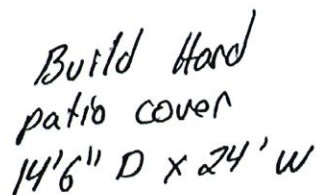 Build Hard
patio cover
14'6" D x 24' W